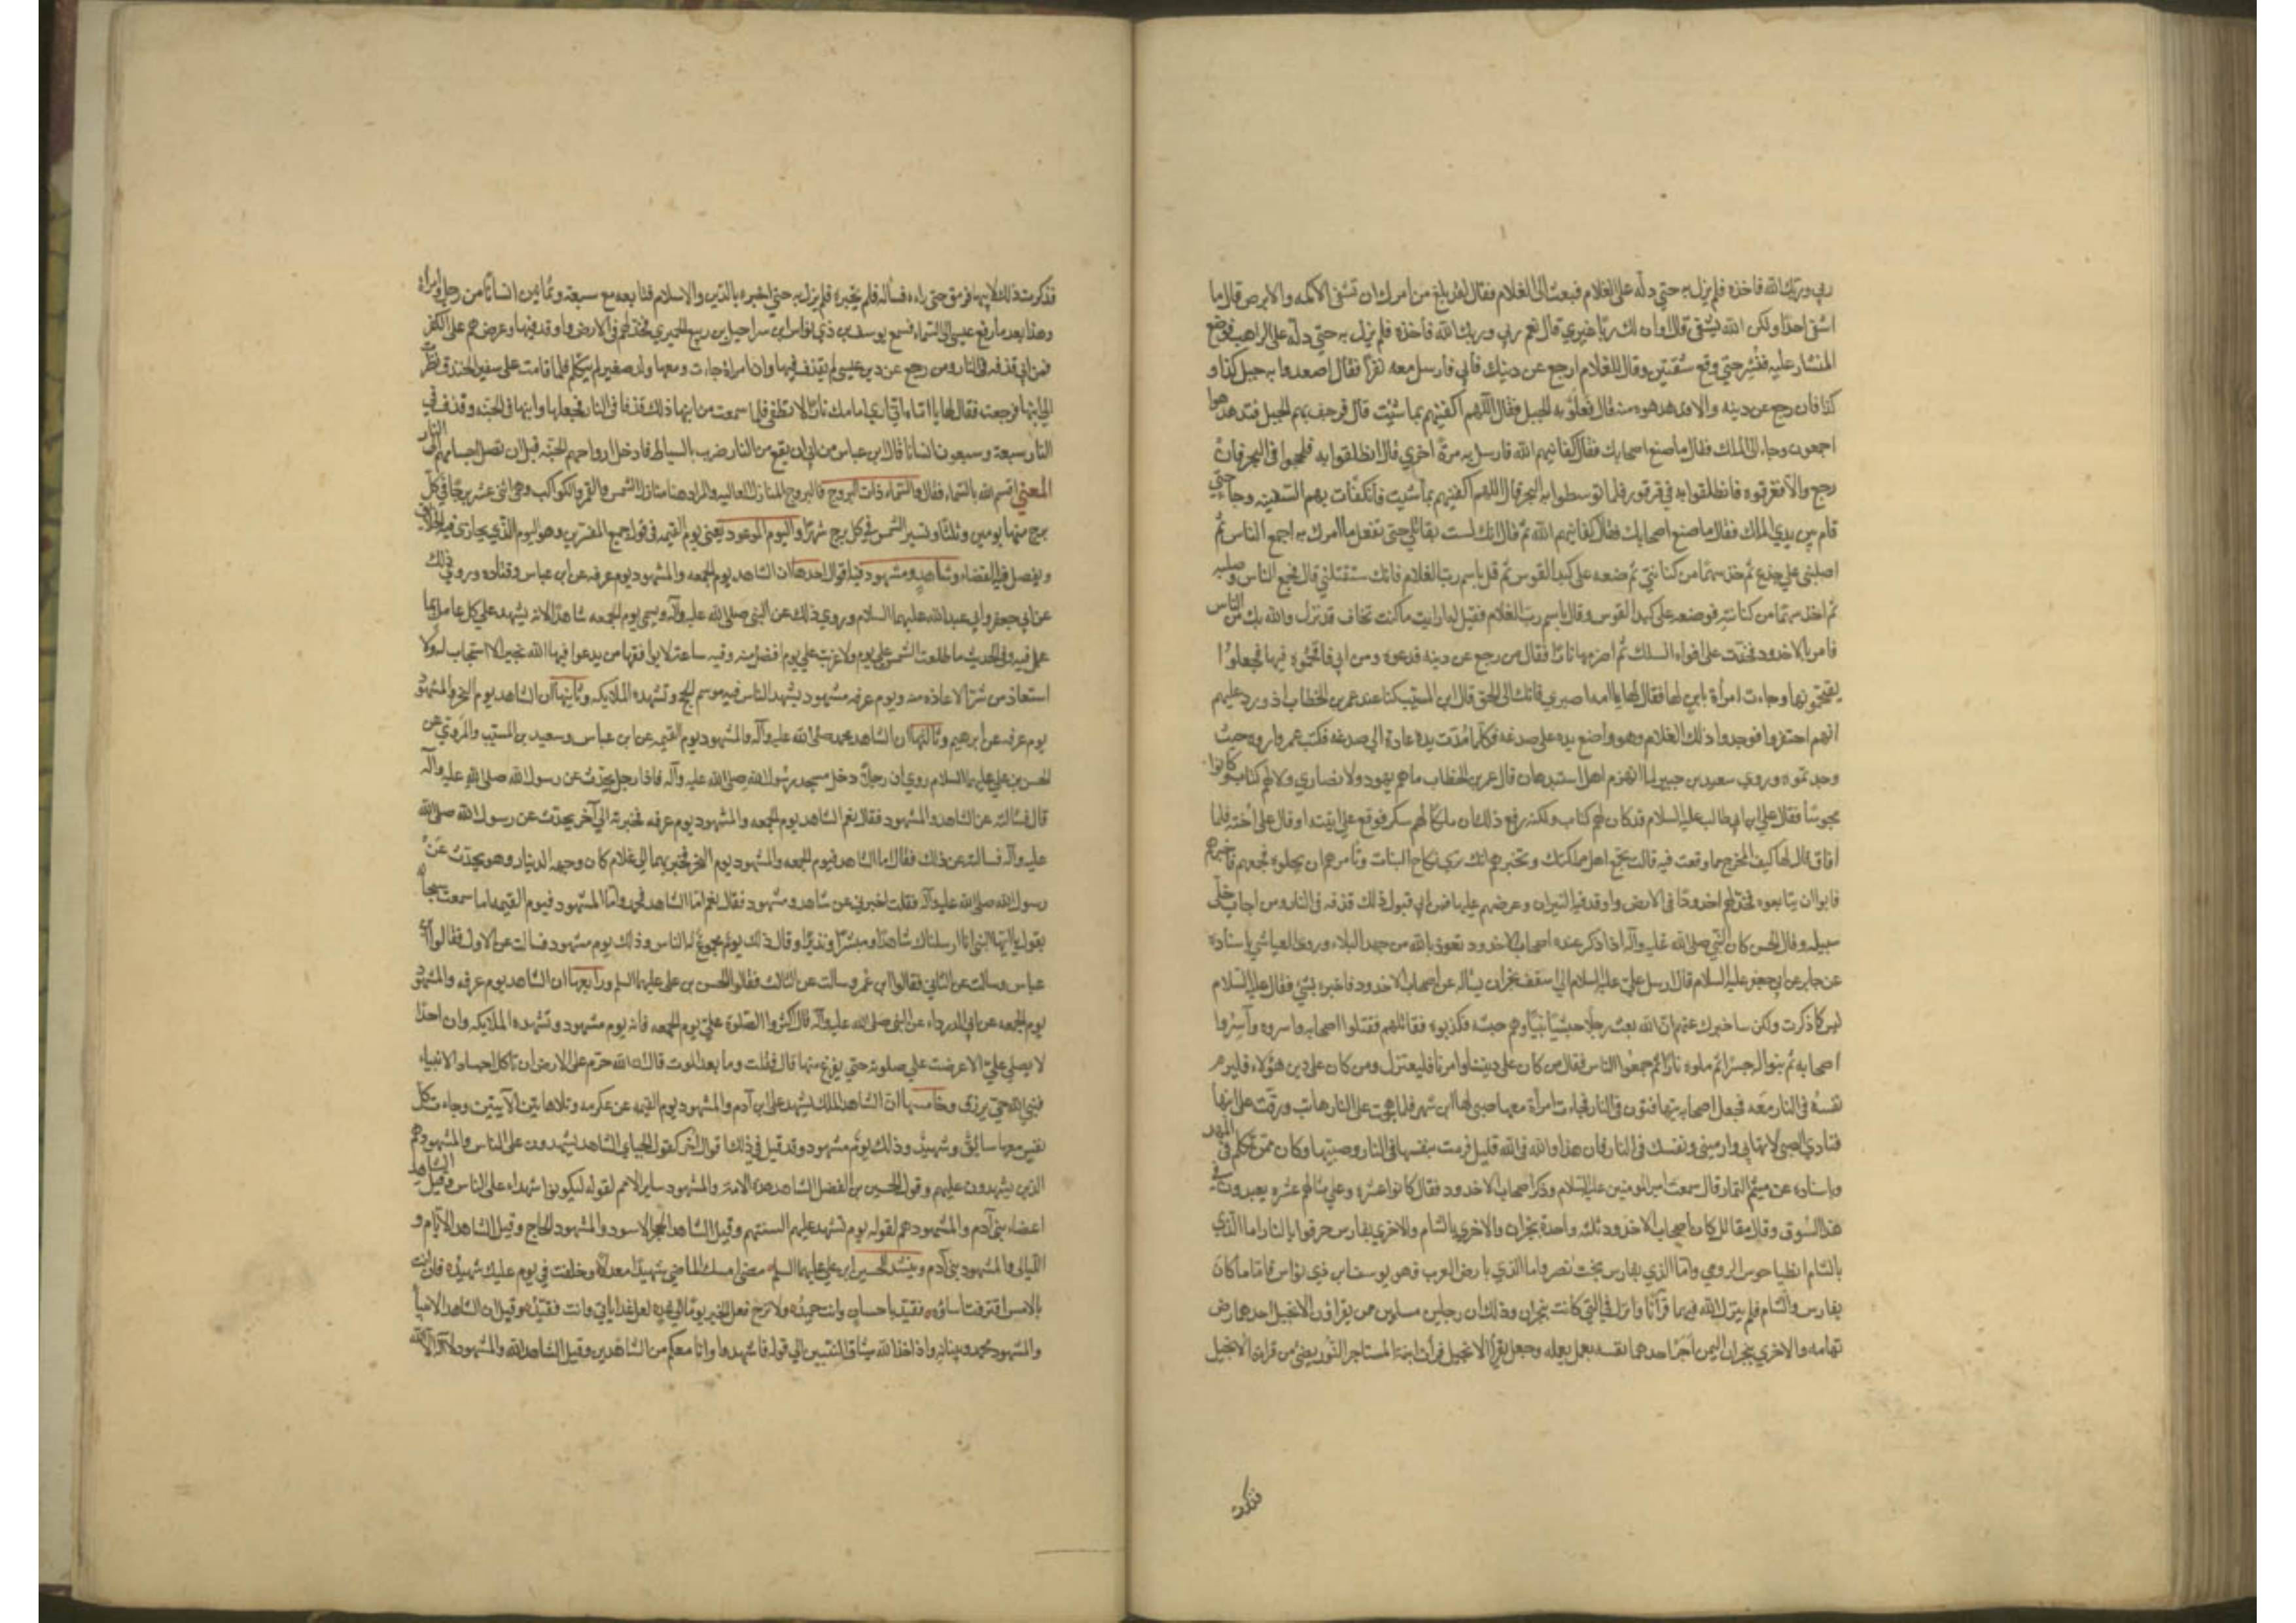 ربي وربك الله فاخذه فلم يزل به حتي دله علي الغلام فبعث الي الغلام فقال لقد بلغ من امرك ان تشفي الاكمه والابرص قال ما
اشفي احدا ولكن الله يشفي قال اوان لك ربا غيري قال نعم ربي وربك الله فأخذه فلم يزل به حتي دله علي الراهب فوضع
المنشار عليه فنشر حتي وقع شقتين وقال للغلام ارجع عن دينك فأبي فأرسل معه نفرا فقال اصعدوا به جبل كذا و
كذا فان رجع عن دينه والا فدهدهوه منه قال فعلوا به الجبل فقال اللهم اكفنيهم بما شئت قال فرجف بهم الجبل فتدهدهوا
اجمعون وجاء الي الملك فقال ما صنع اصحابك فقال كفانيهم الله فارسل به مرة اخري قال انطلقوا به فلججوا في البحر فان
رجع والا فغرقوه فانطلقوا به في قرقور فلما توسطوا به البحر قال اللهم اكفنيهم بما شئت فانكفأت بهم السفينه وجاء حتي
قام بين يدي الملك فقال ما صنع اصحابك فقال كفانيهم الله ثم قال انك لست بقاتلي حتي تفعل ما آمرك به اجمع الناس ثم
اصلبني علي جذع ثم خذ سهما من كنانتي ثم ضعه علي كبد القوس ثم قل باسم رب الغلام فانك ستقتلني قال فجمع الناس وصلبه
ثم اخذ سهما من كنانته فوضعه علي كبد القوس وقال باسم رب الغلام فقيل له ارايت ما كنت تخاف قد نزل والله بك من الناس
فامر بالاخدود فخدت علي افواه السكك ثم اضرمها نارا فقال من رجع عن دينه فدعوه ومن ابي فاقحموه فيها فجعلوا
يقتحمونها وجاءت امرأة بابن لها فقال لها يا امه اصبري فانك الي الحق قال ابن المسيب كنا عند عمر بن الخطاب اذ ورد عليهم
انهم احتفروا فوجدوا ذلك الغلام وهو واضع يده علي صدغه فكلما مدت يده عادت الي صدغه فكتب عمر واروه حيث
وجدتموه وروي سعيد بن جبير لما انهزم اهل اسبدهان قال عمر بن الخطاب ما هم يهود ولا نصاري ولا لهم كتاب وكانوا
مجوسا فقال علي ابن ابي طالب عليه السلام قد كان لهم كتاب ولكنه رفع ذلك ان ملكا لهم سكر فوقع علي ابنته او قال علي اخته فلما
افاق قال لها كيف المخرج مما وقعت فيه قالت تجمع اهل مملكتك وتخبرهم انك تري نكاح البنات وتأمرهم ان يحلوه فجمعهم فأخبرهم
فابوا ان يتابعوه فخد لهم اخدودا في الارض واوقد فيه النيران وعرضهم عليها فمن ابي قبول ذلك قذفه في النار ومن اجاب خلي
سبيله وقال الحسن كان النبي صلي الله عليه وآله اذا ذكر عنده اصحاب الاخدود تعوذ بالله من جهد البلاء وروي العياشي باسناده
عن جابر عن ابي جعفر عليه السلام قال ارسل علي عليه السلام الي اسقف نجران يسأله عن اصحاب الاخدود فاخبره بشيء فقال عليه السلام
ليس كما ذكرت ولكن ساخبرك عنهم ان الله بعث رجلا حبشيا نبيا وهم حبشه فكذبوه فقاتلهم فقتلوا اصحابه واسروه وأسروا
اصحابه ثم بنوا له جسرا ثم ملوه نارا ثم جمعوا الناس فقال من كان علي ديننا وامرنا فليعتزل ومن كان علي دين هؤلاء فليرم
نفسه في النار معه فجعل اصحابه يتهافتون في النار فجاءت امرأة معها صبي لها ابن شهر فلما هجمت علي النار هابت ورقت علي ابنها
فنادي الصبي لا تهابي وارميني ونفسك في النار فان هذا والله في الله قليل فرمت بنفسها في النار وصبيها وكان ممن تكلم في المهد
وباسناده عن ميثم التمار قال سمعت امير المومنين عليه السلام وذكر اصحاب الاخدود فقال كانوا عشرة وعلي مثالهم عشره يعبدون في
هذا السوق وقال مقاتل كان أصحاب الاخدود ثلثه واحدة بنجران والاخري بالشام والاخري بفارس حرقوا بالنار اما الذي
بالشام انطياحوس الرومي واما الذي بفارس بخت نصر واما الذي بارض العرب فهو يوسف ابن ذي نواس فاما ما كان
بفارس والشام فلم ينزل الله فيهما قرآنا وانزل في التي كانت بنجران وذلك ان رجلين مسلمين ممن يقرأون الانجيل احدهما بارض
تهامه والاخري بنجران اليمن آجر احدهما نفسه بعمل يعمله وجعل يقرأ الانجيل فرأت ابنة المستاجر النور يضيء من قرأة الانجيل
فذكرت
فذكرت ذلك لابيها فرمق حتي راءه فسأله فلم يخبره فلم يزل به حتي اخبره بالدين والاسلام فتابعه مع سبعة وثمانين انسانا من رجل وامراة
وهذا بعد ما رفع عيسي الي السماء فسمع يوسف بن ذي نواس ابن سراحيل بن ربيع الحميري فخد لهم في الارض واوقد فيها وعرضهم علي الكفر
فمن ابي قذفه في النار ومن رجع عن دين عيسي لم يقذف فيها وان امراة جاءت ومعها ولد صغير لم يتكلم فلما قامت علي شفير الخندق نظرت
الي ابنها فرجعت فقال لها يا امتاه اني اري امامك نارا لا تطفي فلما سمعت من ابنها ذلك قذفا في النار فجعلها وابنها في الجنه وقذف في
النار سبعة وسبعون انسانا قال ابن عباس من ابي ان يقع من النار ضرب بالسياط فادخل ارواحهم الجنه قبل ان تصل اجسامهم الي النار
المعني اقسم الله بالسماء فقال والسماء ذات البروج فالبروج المنازل العاليه والمراد هنا منازل الشمس والقمر والكواكب وهي اثني عشر برجا في كل
برج منها يومين وثلثا وتسير الشمس في كل برج شهرا واليوم الموعود يعني يوم القيمه في قول جميع المفسرين وهو اليوم الذي يجازي فيه الخلائق
ويفصل فيه القضاء وشاهد ومشهود فيه اقوال احدها ان الشاهد يوم الجمعه والمشهود يوم عرفه عن ابن عباس وقتاده وروي ذلك
عن ابي جعفر وابي عبد الله عليهما السلام وروي ذلك عن النبي صلي الله عليه وآله وسمي يوم الجمعه شاهدا لانه يشهد علي كل عامل بما
عمل فيه وفي الحديث ما طلعت الشمس علي يوم ولا غربت علي يوم افضل منه وفيه ساعة لا يوافقها من يدعوا فيها الله بخير الا استجاب له ولا
استعاذ من شر الا اعاذه منه ويوم عرفه مشهود يشهد الناس فيه موسم الحج وتشهده الملايكه وثانيها ان الشاهد يوم النحر والمشهود
يوم عرفه عن ابرهيم وثالثها ان الشاهد محمد صلي الله عليه وآله والمشهود يوم القيمه عن ابن عباس وسعيد بن المسيب والمروي عن
الحسن بن علي عليهما السلام روي ان رجلا دخل مسجد رسول الله صلي الله عليه وآله فاذا رجل يحدث عن رسول الله صلي الله عليه وآله
قال فسألته عن الشاهد والمشهود فقال نعم الشاهد يوم الجمعه والمشهود يوم عرفه فجزته الي آخر يحدث عن رسول الله صلي الله
عليه وآله فسألته عن ذلك فقال اما الشاهد فيوم الجمعه والمشهود يوم النحر فجزتهما الي غلام كان وجهه الدينار وهو يحدث عن
رسول الله صلي الله عليه وآله فقلت اخبرني عن شاهد ومشهود فقال نعم اما الشاهد فمحمد واما المشهود فيوم القيمه اما سمعت سبحانه
يقول يا ايها النبي انا ارسلناك شاهدا ومبشرا ونذيرا وقال ذلك يوم مجموع له الناس وذلك يوم مشهود فسالت عن الاول فقالوا ابن
عباس وسالت عن الثاني فقالوا ابن عمر وسالت عن الثالث فقالوا الحسن بن علي عليهما السلم ورابعها ان الشاهد يوم عرفه والمشهود
يوم الجمعه عن ابي الدرداء عن النبي صلي الله عليه وآله قال اكثروا الصلوة علي يوم الجمعه فانه يوم مشهود وتشهده الملايكه وان احدا
لا يصلي علي الا عرضت علي صلوته حتي يفرغ منها قال فقلت وما بعد الموت قال ان الله حرم علي الارض ان تأكل اجساد الانبياء
فنبي الله حي يرزق وخامسها ان الشاهد الملك يشهد علي ابن آدم والمشهود يوم القيمه عن عكرمه وتلا هاتين الآيتين وجاءت كل
نفس معها سائق وشهيد وذلك يوم مشهود وقد قيل في ذلك اقوال اخر كقول الجبائي الشاهد يشهدون علي الناس والمشهود هم
الذين يشهدون عليهم وقول الحسين بن الفضل الشاهد هذه الامة والمشهود ساير الامم لقوله ليكونوا شهداء علي الناس وقيل الشاهد
اعضاء بني آدم والمشهود هم لقوله يوم تشهد عليهم السنتهم وقيل الشاهد الحجر الاسود والمشهود الحاج وقيل الشاهد الايام و
الليالي والمشهود بني آدم وينشد للحسين ابن علي عليهما السلم مضي امسك الماضي شهيدا معدلا وخلفت في يوم عليك شهيد فان انت
بالامس اقترفت اساءة فقيد باحسان وانت حميد ولا ترج فعل الخير يوما الي غد لعل غدا يأتي وانت فقيد وقيل ان الشاهد الانبيأ
والمشهود محمد وبيانه واذ اخذ الله ميثاق النبيين الي قوله فاشهدوا وانا معكم من الشاهدين وقيل الشاهد الله والمشهود لا اله الا الله